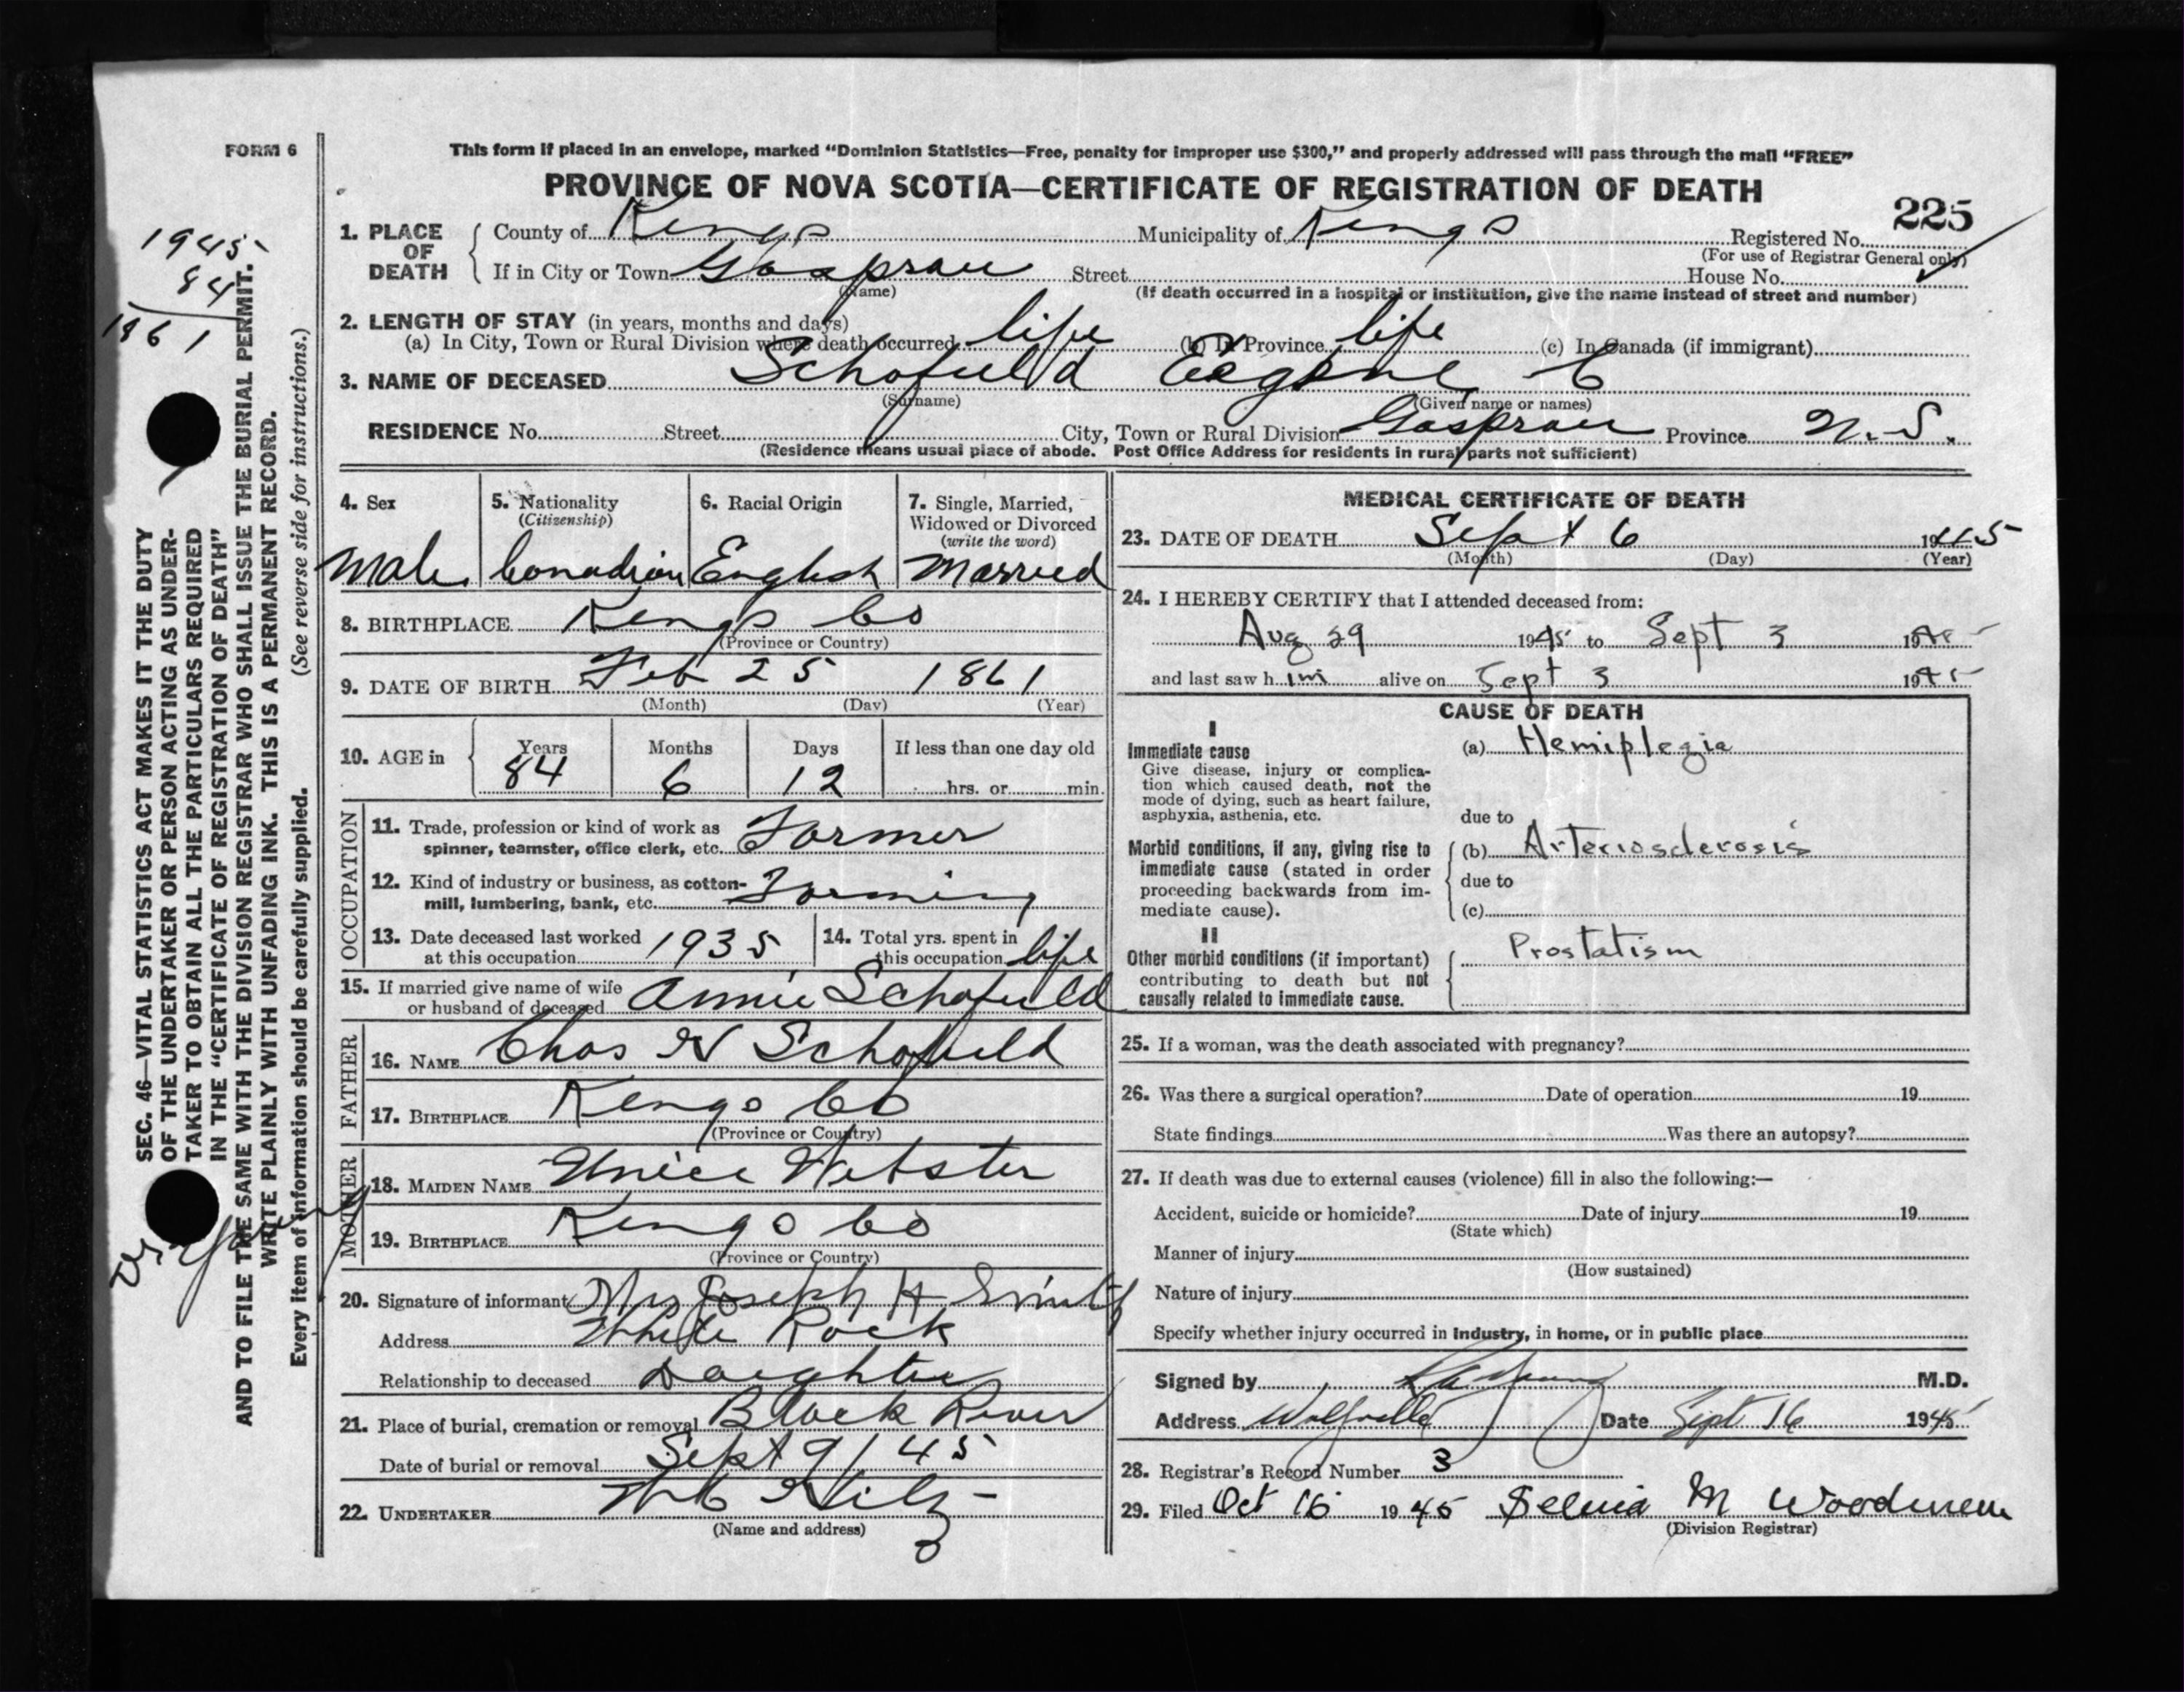 FORM 6
This form if placed in an envelope, marked "Dominion Statistics—Free, penalty for improper use $300," and properly addressed will pass through the mail "FREE"
PROVINCE OF NOVA SCOTIA—CERTIFICATE OF REGISTRATION OF DEATH
225
1945
84
1861
SEC. 46—VITAL STATISTICS ACT MAKES IT THE DUTY
OF THE UNDERTAKER OR PERSON ACTING AS UNDER-
TAKER TO OBTAIN ALL THE PARTICULARS REQUIRED
IN THE "CERTIFICATE OF REGISTRATION OF DEATH"
AND TO FILE THE SAME WITH THE DIVISION REGISTRAR WHO SHALL ISSUE THE BURIAL PERMIT.
WRITE PLAINLY WITH UNFADING INK. THIS IS A PERMANENT RECORD.
Every item of information should be carefully supplied. (See reverse side for instructions.)
1. PLACE OF DEATH
County of Kings Municipality of Kings Registered No.
(For use of Registrar General only)
If in City or Town Gaspreau Street House No.
(Name) (If death occurred in a hospital or institution, give the name instead of street and number)
2. LENGTH OF STAY (in years, months and days)
(a) In City, Town or Rural Division where death occurred life (b) In Province life (c) In Canada (if immigrant)
3. NAME OF DECEASED Schofield Eugene C
(Surname) (Given name or names)
RESIDENCE No. Street City, Town or Rural Division Gaspreau Province N.S.
(Residence means usual place of abode. Post Office Address for residents in rural parts not sufficient)
4. Sex
Male
5. Nationality
(Citizenship)
Canadian
6. Racial Origin
English
7. Single, Married,
Widowed or Divorced
(write the word)
Married
8. BIRTHPLACE Kings Co
(Province or Country)
9. DATE OF BIRTH Feb 25 1861
(Month) (Day) (Year)
10. AGE in Years Months Days If less than one day old
84 6 12 hrs. or min.
OCCUPATION
11. Trade, profession or kind of work as
spinner, teamster, office clerk, etc. Farmer
12. Kind of industry or business, as cotton-
mill, lumbering, bank, etc. Farming
13. Date deceased last worked
at this occupation 1935
14. Total yrs. spent in
this occupation life
15. If married give name of wife
or husband of deceased Annie Schofield
FATHER
16. NAME Chas N Schofield
17. BIRTHPLACE Kings Co
(Province or Country)
MOTHER
18. MAIDEN NAME Unice Webster
19. BIRTHPLACE Kings Co
(Province or Country)
20. Signature of informant Mrs Joseph H Smith
Address White Rock
Relationship to deceased Daughter
21. Place of burial, cremation or removal Black River
Date of burial or removal Sept 9/45
22. UNDERTAKER
(Name and address)
MEDICAL CERTIFICATE OF DEATH
23. DATE OF DEATH Sept 6 1945
(Month) (Day) (Year)
24. I HEREBY CERTIFY that I attended deceased from:
Aug 29 1945 to Sept 3 1945
and last saw him alive on Sept 3 1945
CAUSE OF DEATH
I
Immediate cause
Give disease, injury or complica-
tion which caused death, not the
mode of dying, such as heart failure,
asphyxia, asthenia, etc.
(a) Hemiplegia
due to
Morbid conditions, if any, giving rise to
immediate cause (stated in order
proceeding backwards from im-
mediate cause).
(b) Arteriosclerosis
due to
(c)
II
Other morbid conditions (if important)
contributing to death but not
causally related to immediate cause.
Prostatism
25. If a woman, was the death associated with pregnancy?
26. Was there a surgical operation? Date of operation 19
State findings Was there an autopsy?
27. If death was due to external causes (violence) fill in also the following:—
Accident, suicide or homicide? Date of injury 19
(State which)
Manner of injury
(How sustained)
Nature of injury
Specify whether injury occurred in industry, in home, or in public place
Signed by M.D.
Address Wolfville Date Sept 16 1945
28. Registrar's Record Number 3
29. Filed Oct 16 1945 M Woodman
(Division Registrar)